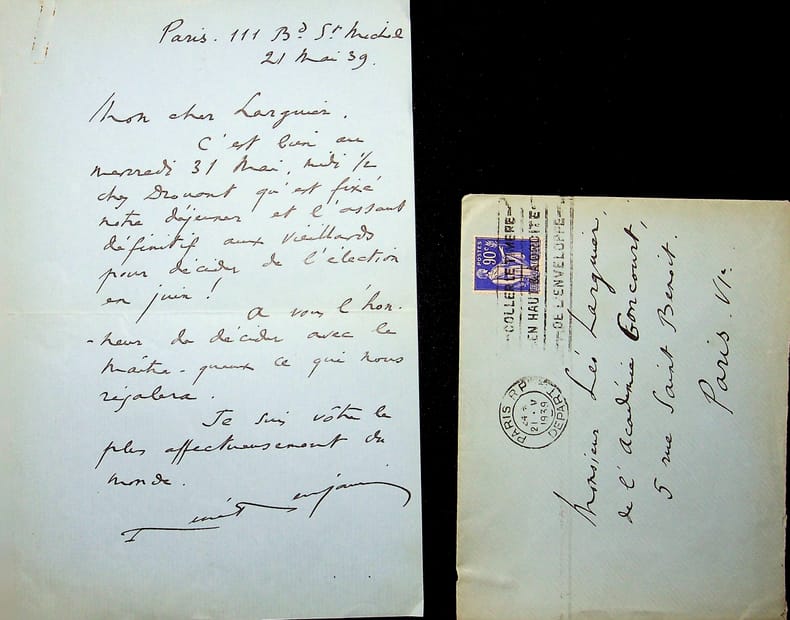 Paris. 111 Bd St Michel
21 Mai 39.
Mon cher Larguier,
C'est bien au
mercredi 31 Mai, midi 1/2
chez Drouant qu'est fixé
notre déjeuner et l'assaut
définitif aux vieillards
pour décider de l'élection
en juin !
A vous l'hon-
-neur de décider avec le
maître-queux ce qui nous
régalera.
Je suis vôtre le
plus affectueusement du
monde.
René Benjamin
POSTES
90c
COLLER LE TIMBRE
EN HAUT & A DROITE
DE L'ENVELOPPE
PARIS RP
21 · V
1939
DEPART
Monsieur Léo Larguier,
de l'Académie Goncourt,
5 rue Saint Benoit.
Paris. VIe